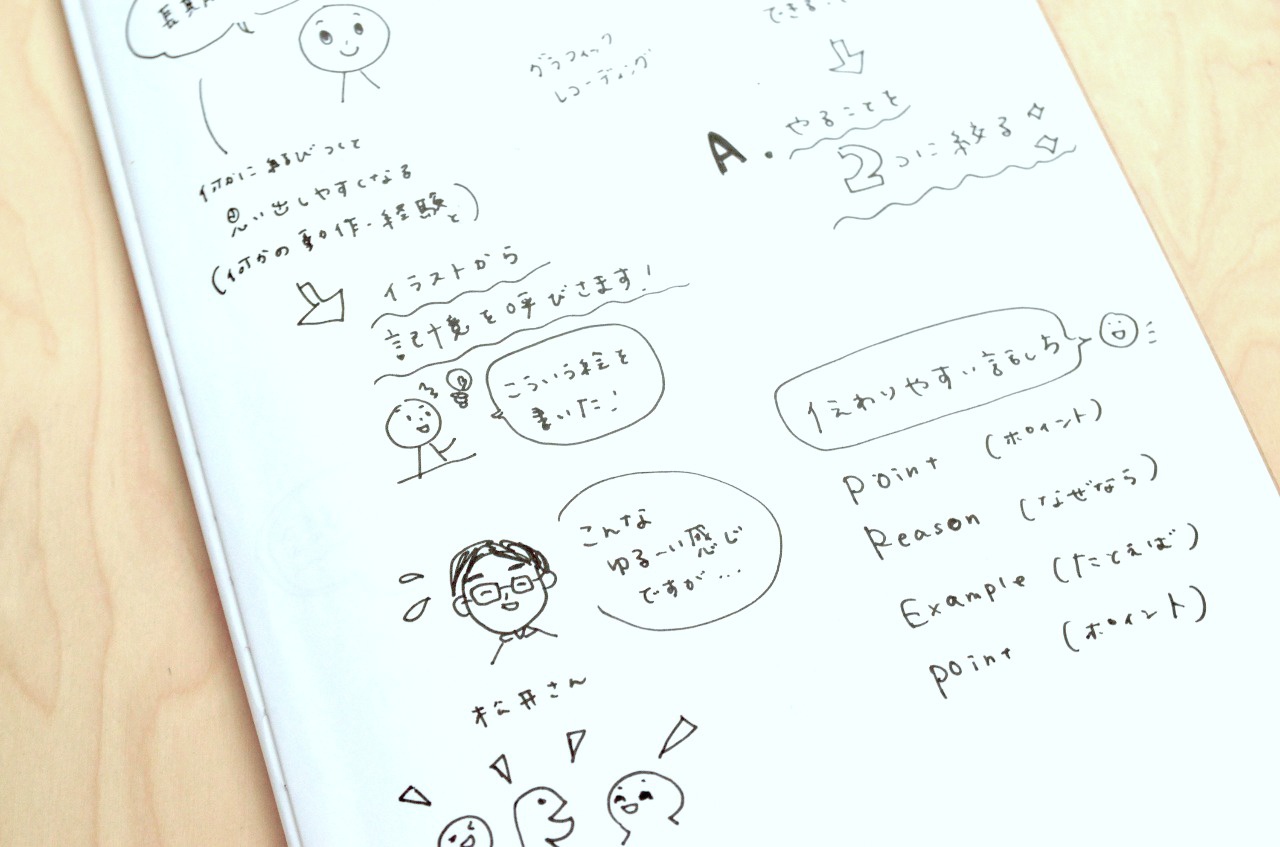 グラフィック
レコーディング
何かに結びつくと
思い出しやすくなる
(何かの動作・経験と)
イラストから
記憶を呼びさます!
こういう絵を
書いた!
こんな
ゆる〜い感じ
ですが…
松井さん
できる…
A.
やることを
2つに絞る
伝わりやすい話し方
point (ポイント)
Reason (なぜなら)
Example (たとえば)
point (ポイント)